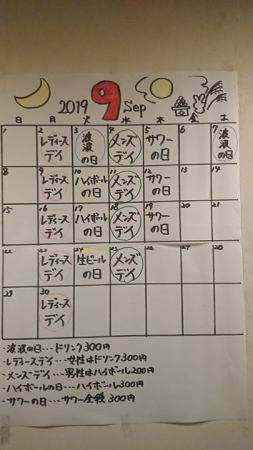 2019 9 Sep
日 月 火 水 木 金 土
1 2 3 4 5 6 7
レディース デイ 波波の日 メンズデイ サワーの日 波波の日
8 9 10 11 12 13 14
レディース デイ ハイボールの日 メンズデイ サワーの日
15 16 17 18 19 20 21
レディース デイ ハイボールの日 メンズデイ サワーの日
22 23 24 25 26 27 28
レディース デイ 生ビールの日 メンズデイ
29 30
レディース デイ
・波波の日…ドリンク300円
・レディースデイ…女性はドリンク300円
・メンズデイ…男性はハイボール200円
・ハイボールの日…ハイボール300円
・サワーの日…サワー全種300円